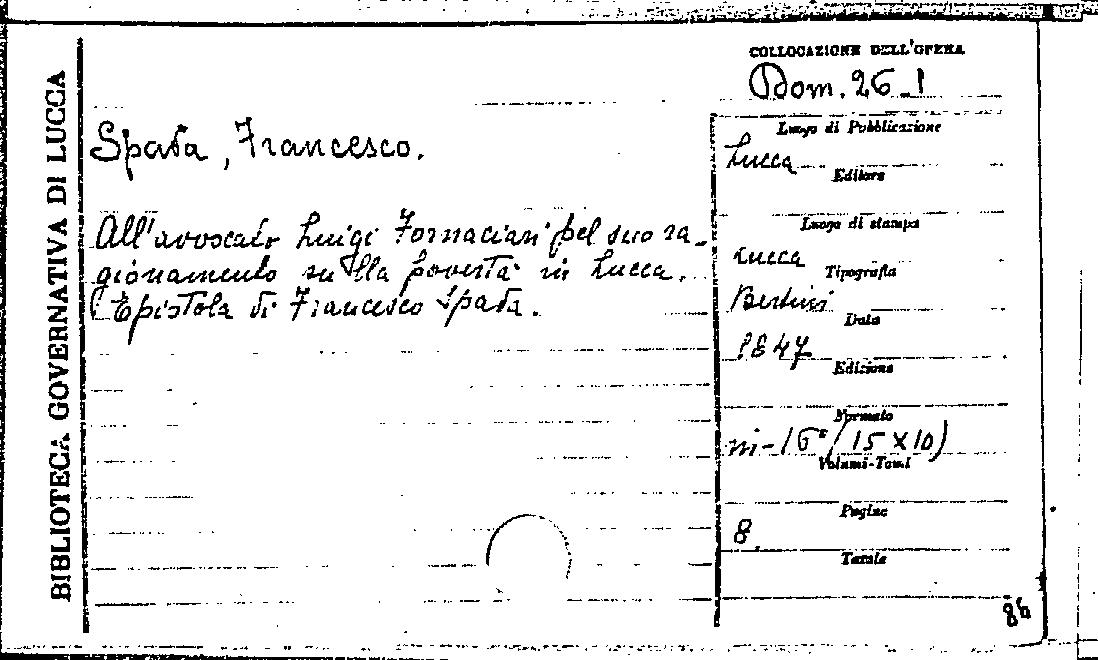 BIBLIOTECA GOVERNATIVA DI LUCCA
COLLOCAZIONE DELL'OPERA
Dom. 26_1
Spada, Francesco.
All'avvocato Luigi Fornaciari pel suo ra-
gionamento sulla povertà in Lucca.
Epistola di Francesco Spada.
Luogo di Pubblicazione
Lucca
Editore
Luogo di stampa
Lucca
Tipografia
Bertini
Data
1847
Edizione
Formato
in-16° (15 x 10)
Volumi-Tomi
Pagine
8
Tavole
86